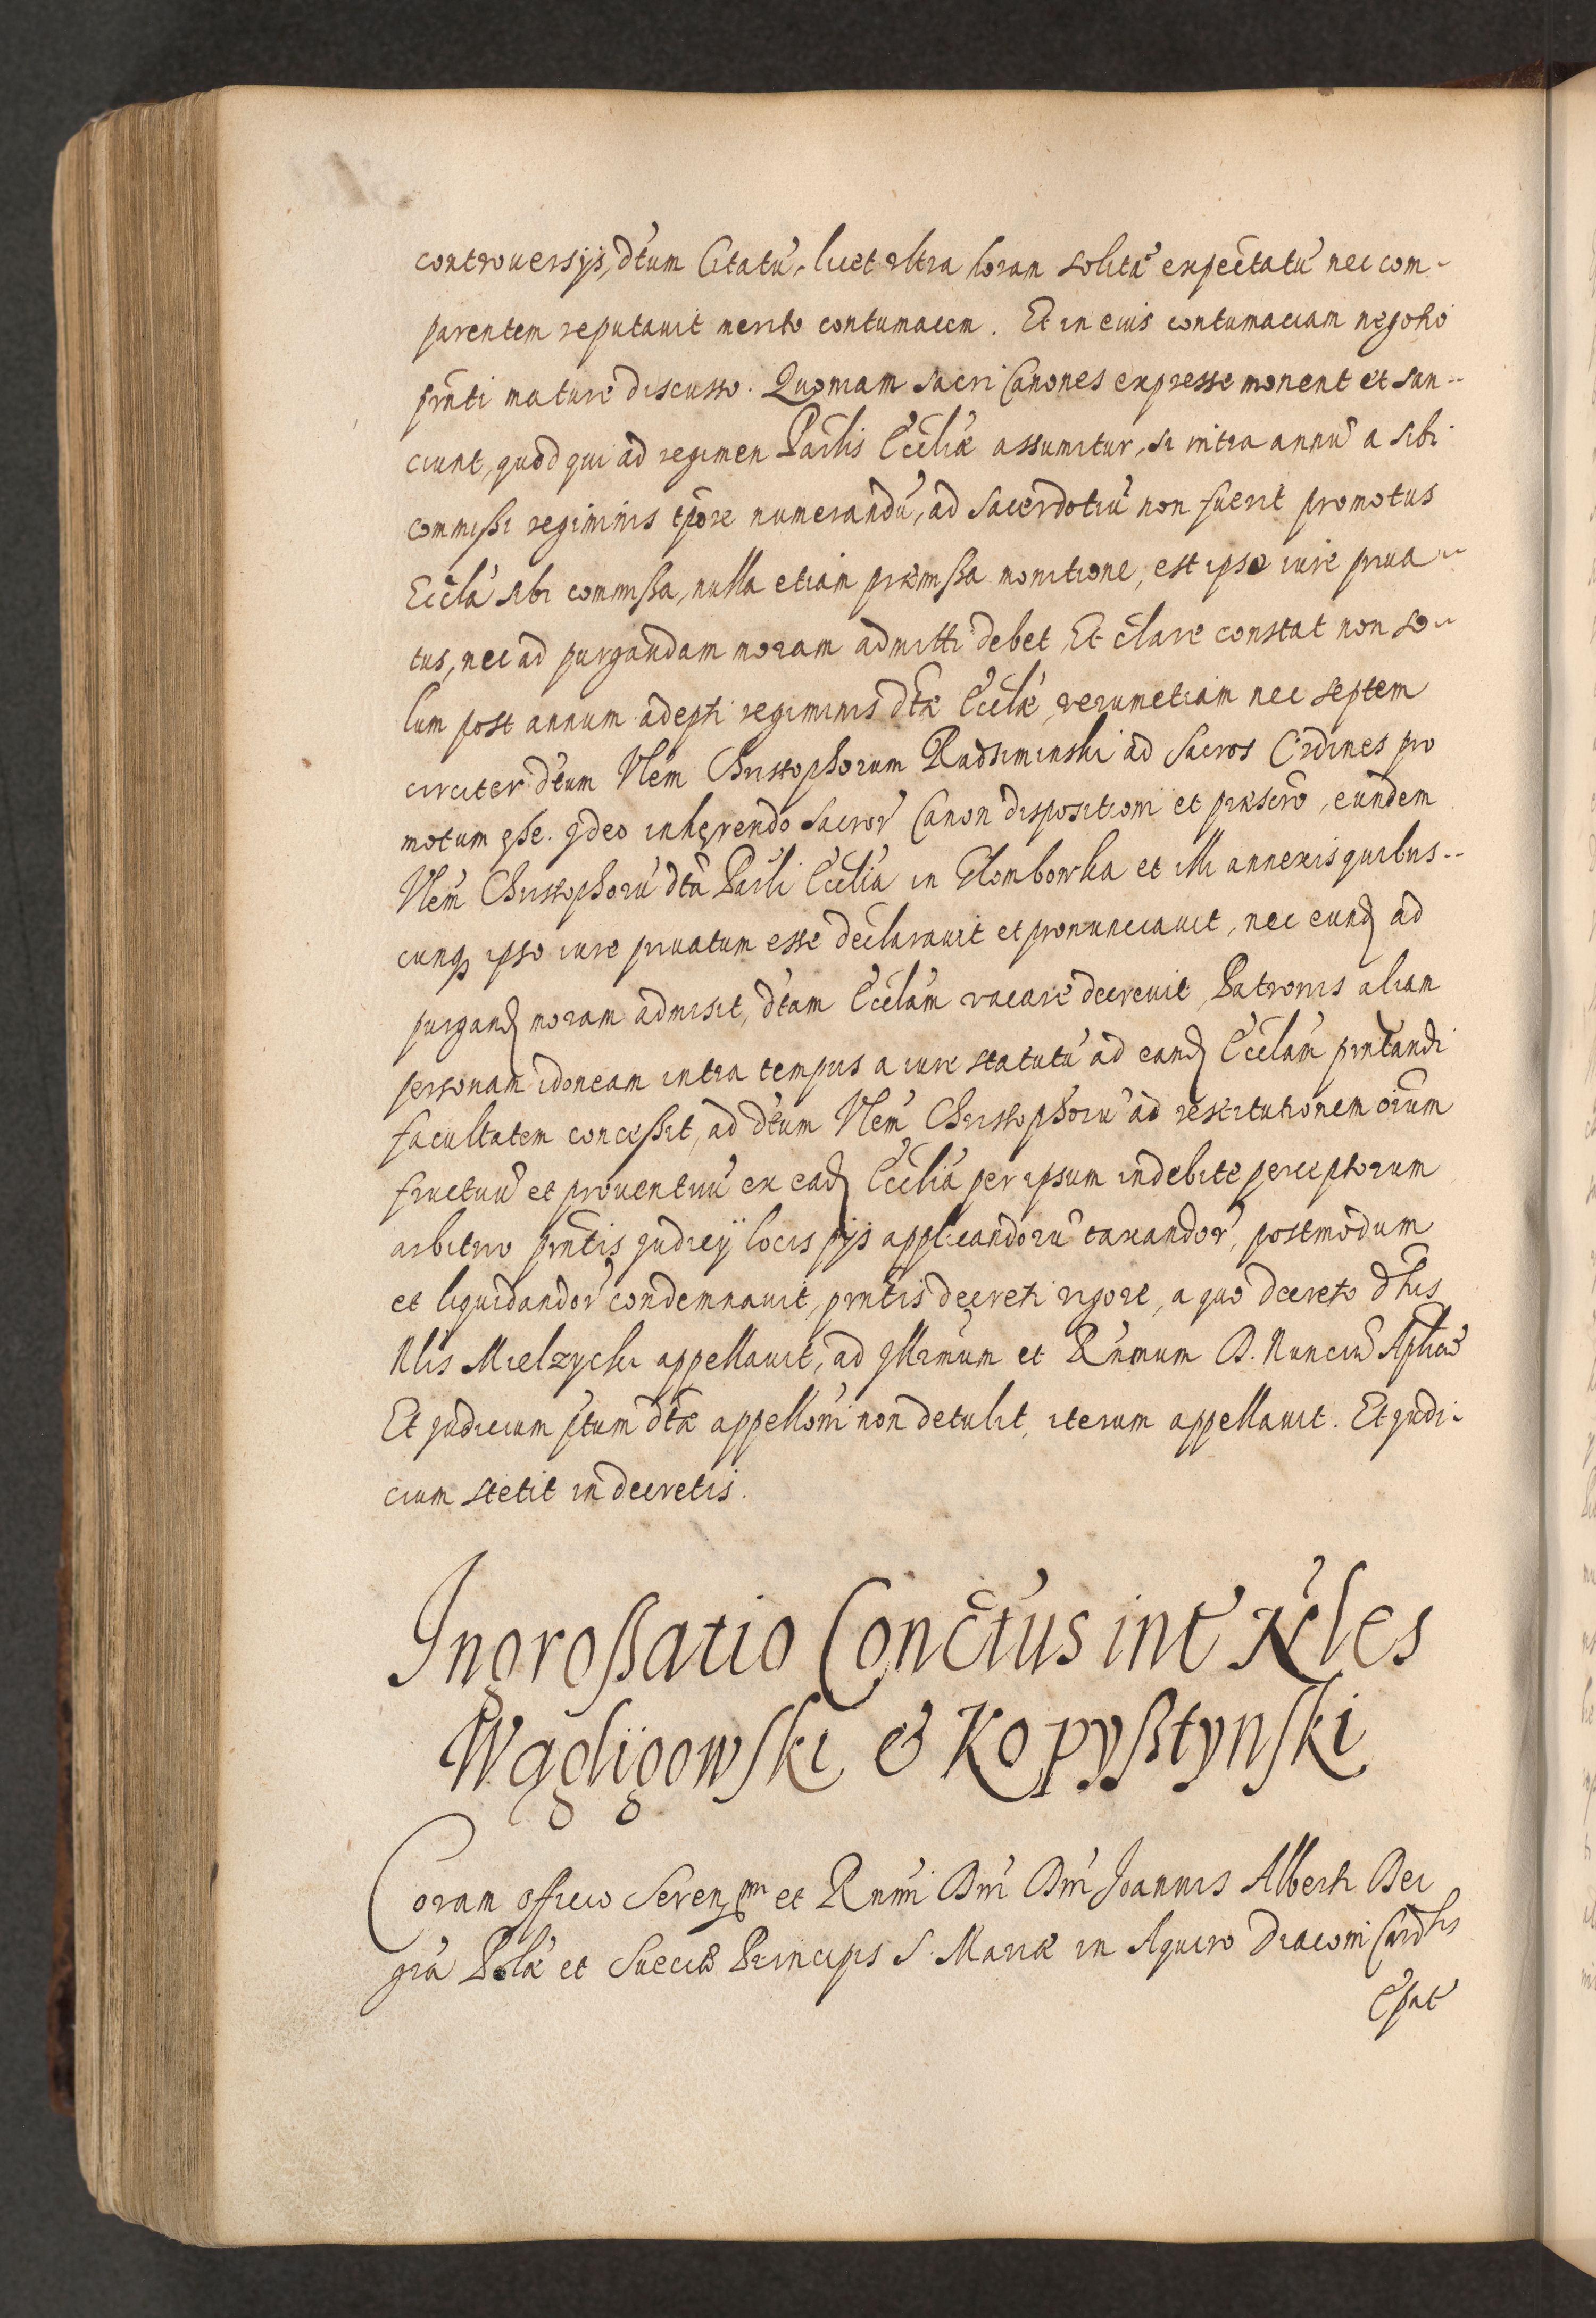 controuersijs, dtum Citatu, licet vltra horam solita expectatu nec com-
parentem reputauit merito contumacem. Et in eius contumaciam negotio
pnti mature discusso. Quoniam sacri Canones expresse monent et san-
ciunt, quod qui ad regimen Parlis Eccliæ assumitur, si intra annu a sibi
commissi regiminis tpore numerandu, ad sacerdotiu non fuerit promotus
Eccla sibi commissa, nulla etiam præmissa monitione, est ipso iure priua-
tus, nec ad purgandam moram admitti debet Et clare constat non so-
lum post annum adepti regiminis dtæ Ecclæ, verumetiam nec septem
circiter dtum Nlem Christophorum Radziminski ad Sacros Ordines pro
motum esse. Ideo inhęrendo Sacror Canon dispositioni et præscro, eundem
Nlem Christophoru dta Parli Ecclia in Glembowka et illi annexis quibus-
cunq ipso iure priuatum esse declarauit et pronunciauit, nec eund ad
purgand moram admisit, dtam Ecclam vacare decreuit, Patronis aliam
personam idoneam intra tempus a iure statutu ad eand Ecclam pntandi
facultatem concessit, ad dtum Nlem Christophoru ad restitutionem oium
fructuu et prouentuu ex ead Ecclia per ipsum indebite perceptorum
arbitrio pntis Judicij locis pijs applicandoru taxandor, postmodum
et liquidandor condemnauit, pntis decreti vigore, a quo decreto dtus
Nlis Mielzycki appellauit, ad Illrimum et Rnmum D. Nunciu Aplicu
Et Judicium ptum dtæ appelloni non detulit, iterum appellauit. Et Judi-
cium stetit in decretis.
Ingrossatio Conctus int Nles
Wągligowski & Kopysstynski
Coram officio Serenssmi et Rnmi Dni Dni Joannis Alberti Dei
gra Polæ et Sueciæ Principis S. Mariæ in Aquiro Diaconi Cardlis
Epat